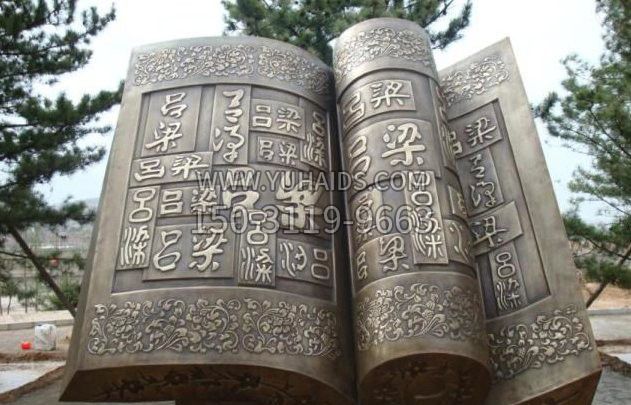 吕梁
吕梁
吕梁
吕梁
吕梁
吕梁
吕梁
吕梁
吕梁
吕梁
吕梁
WWW.YUHAIDS.COM
150-3119-9663
吕梁
吕梁
吕梁
梁
梁
梁
吕梁